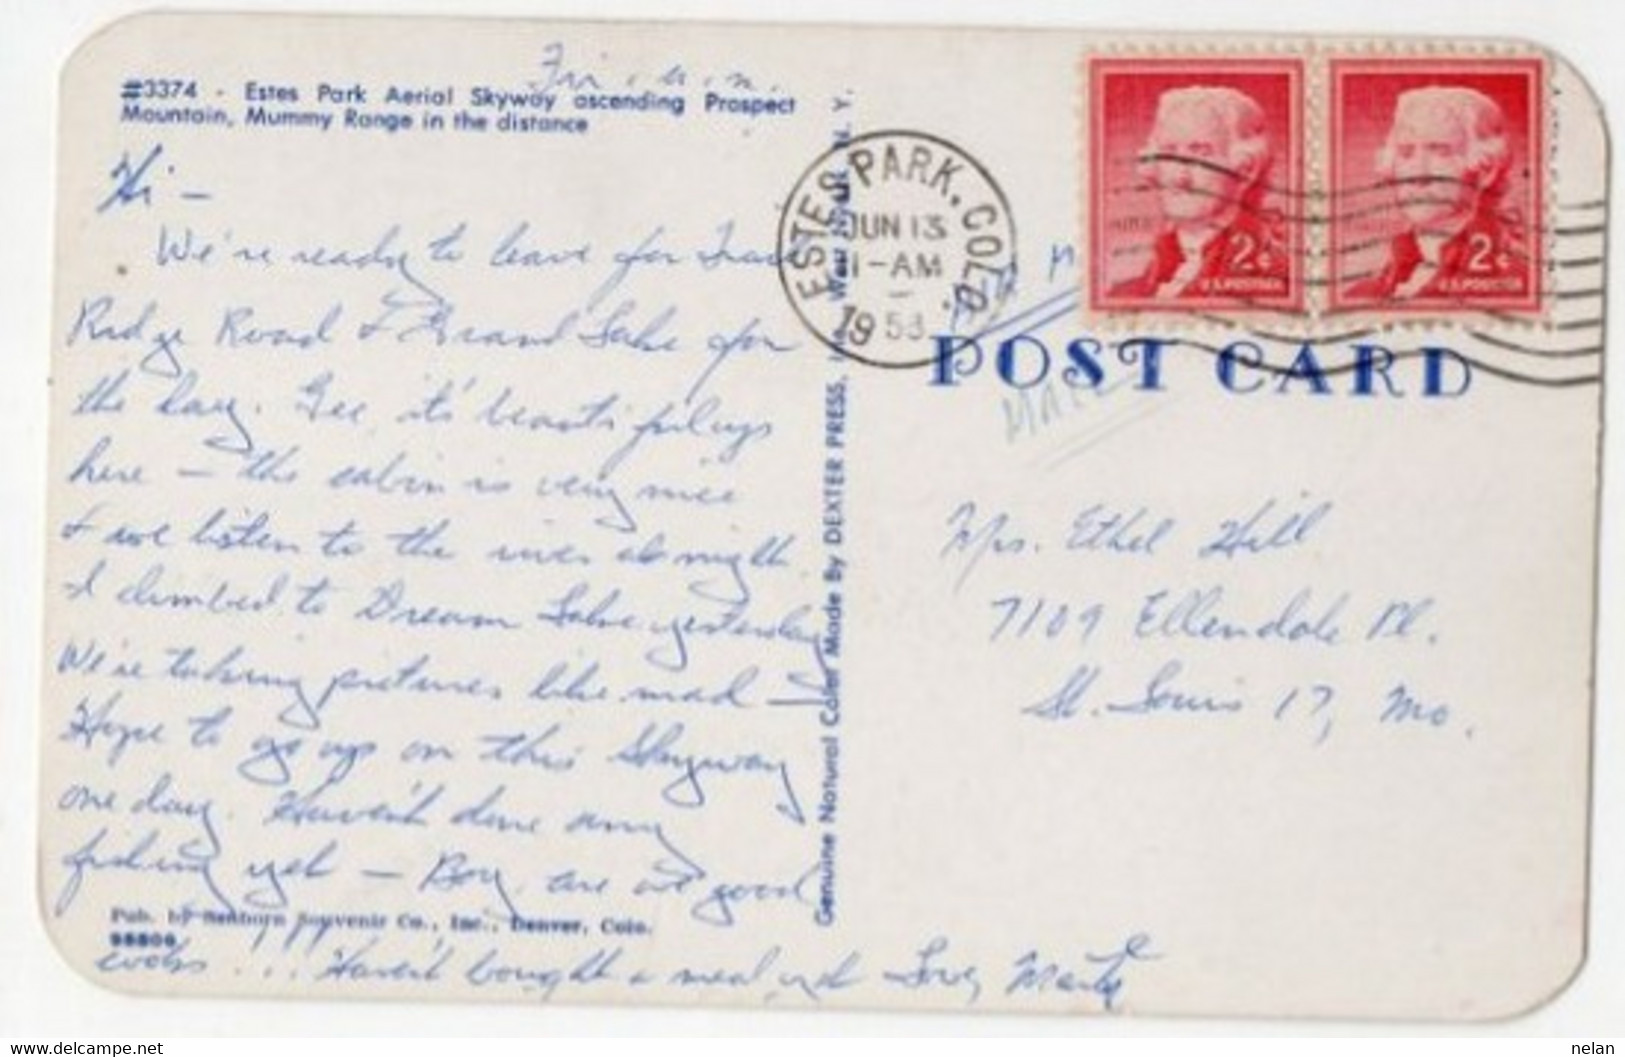 Fri. a.m.
#3374 - Estes Park Aerial Skyway ascending Prospect
Mountain, Mummy Range in the distance
Hi -
We're ready to leave for Trail
Ridge Road & Grand Lake for
the day. Gee, it's
here - the cabin is very nice
& we listen to the river at night.
I climbed to Dream Lake yesterday
We're taking pictures like mad -
Hope to go up on this Skyway
one day. Haven't done any
fishing yet - Boy, are we good
Pub. by Sanborn Souvenir Co., Inc., Denver, Colo.
cooks ... Haven't bought a meal yet Love,
Genuine Natural Color Made By DEXTER PRESS, Inc., West Nyack, N. Y.
ESTES PARK, COLO.
JUN 13
1958
2¢
U.S. POSTAGE
2¢
U.S. POSTAGE
POST CARD
Mrs. Ethel Hill
7109 Ellendale Pl.
St. Louis 17, Mo.
www.delcampe.net
nelan